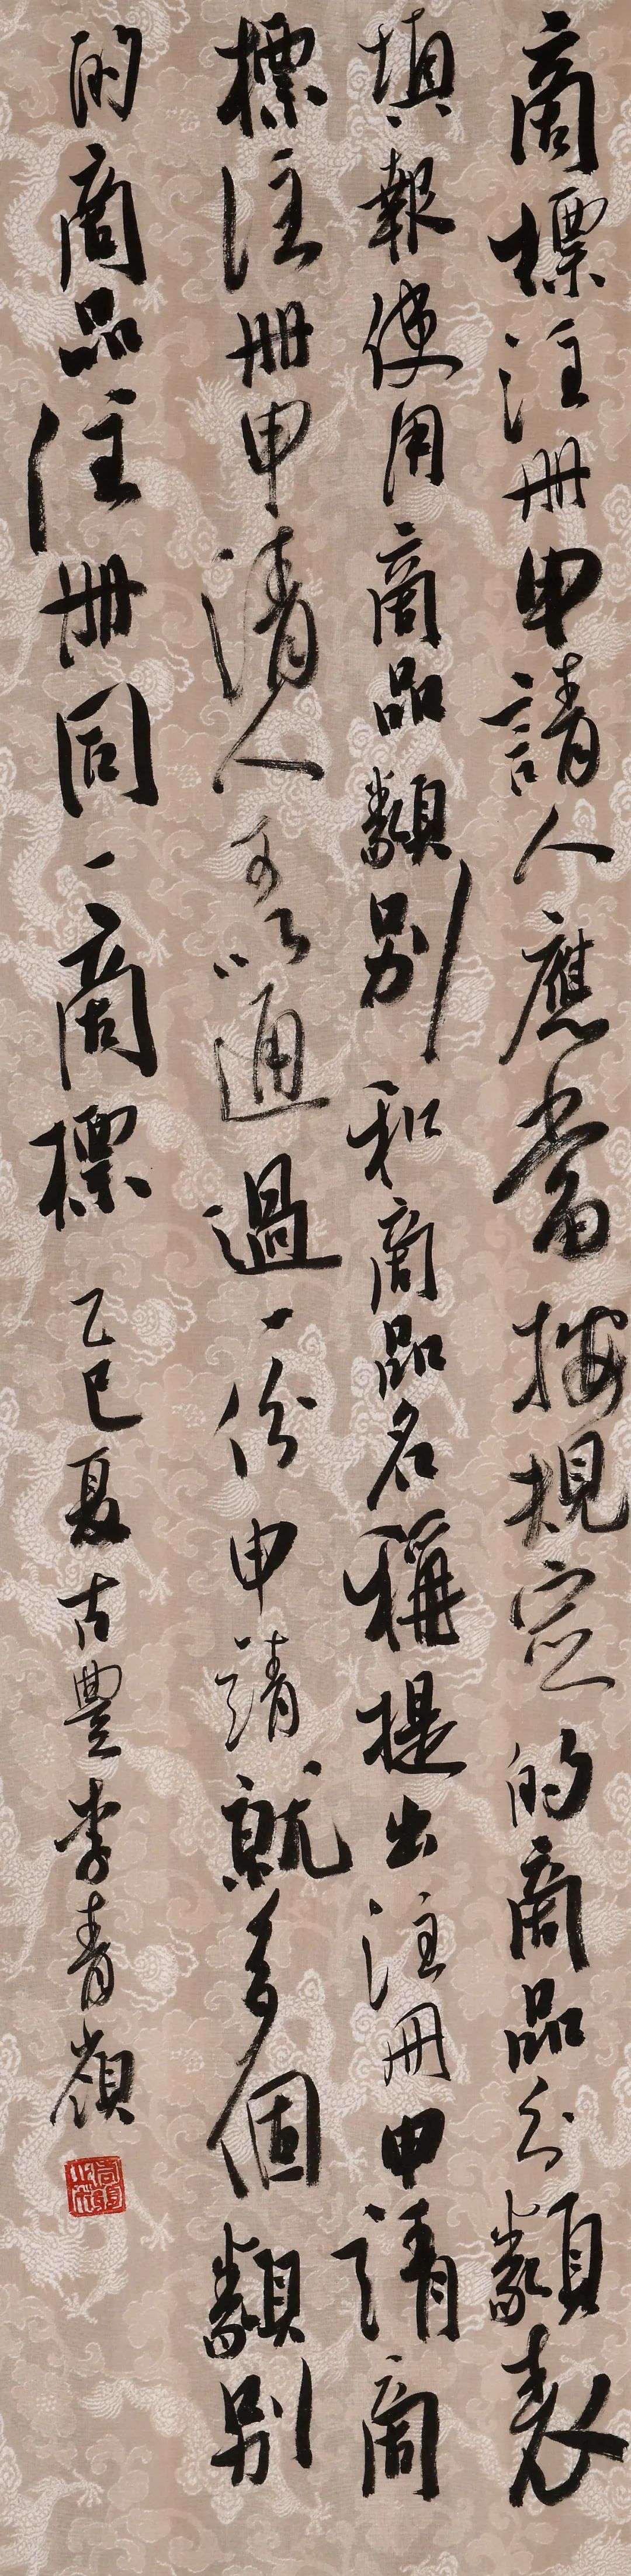 商標注册申請人應當按規定的商品分類表
填報使用商品類別和商品名稱提出注册申請商
標注册申請人可以通過一份申請就多個類別
的商品注册同一商標 乙巳夏古豐李青顏